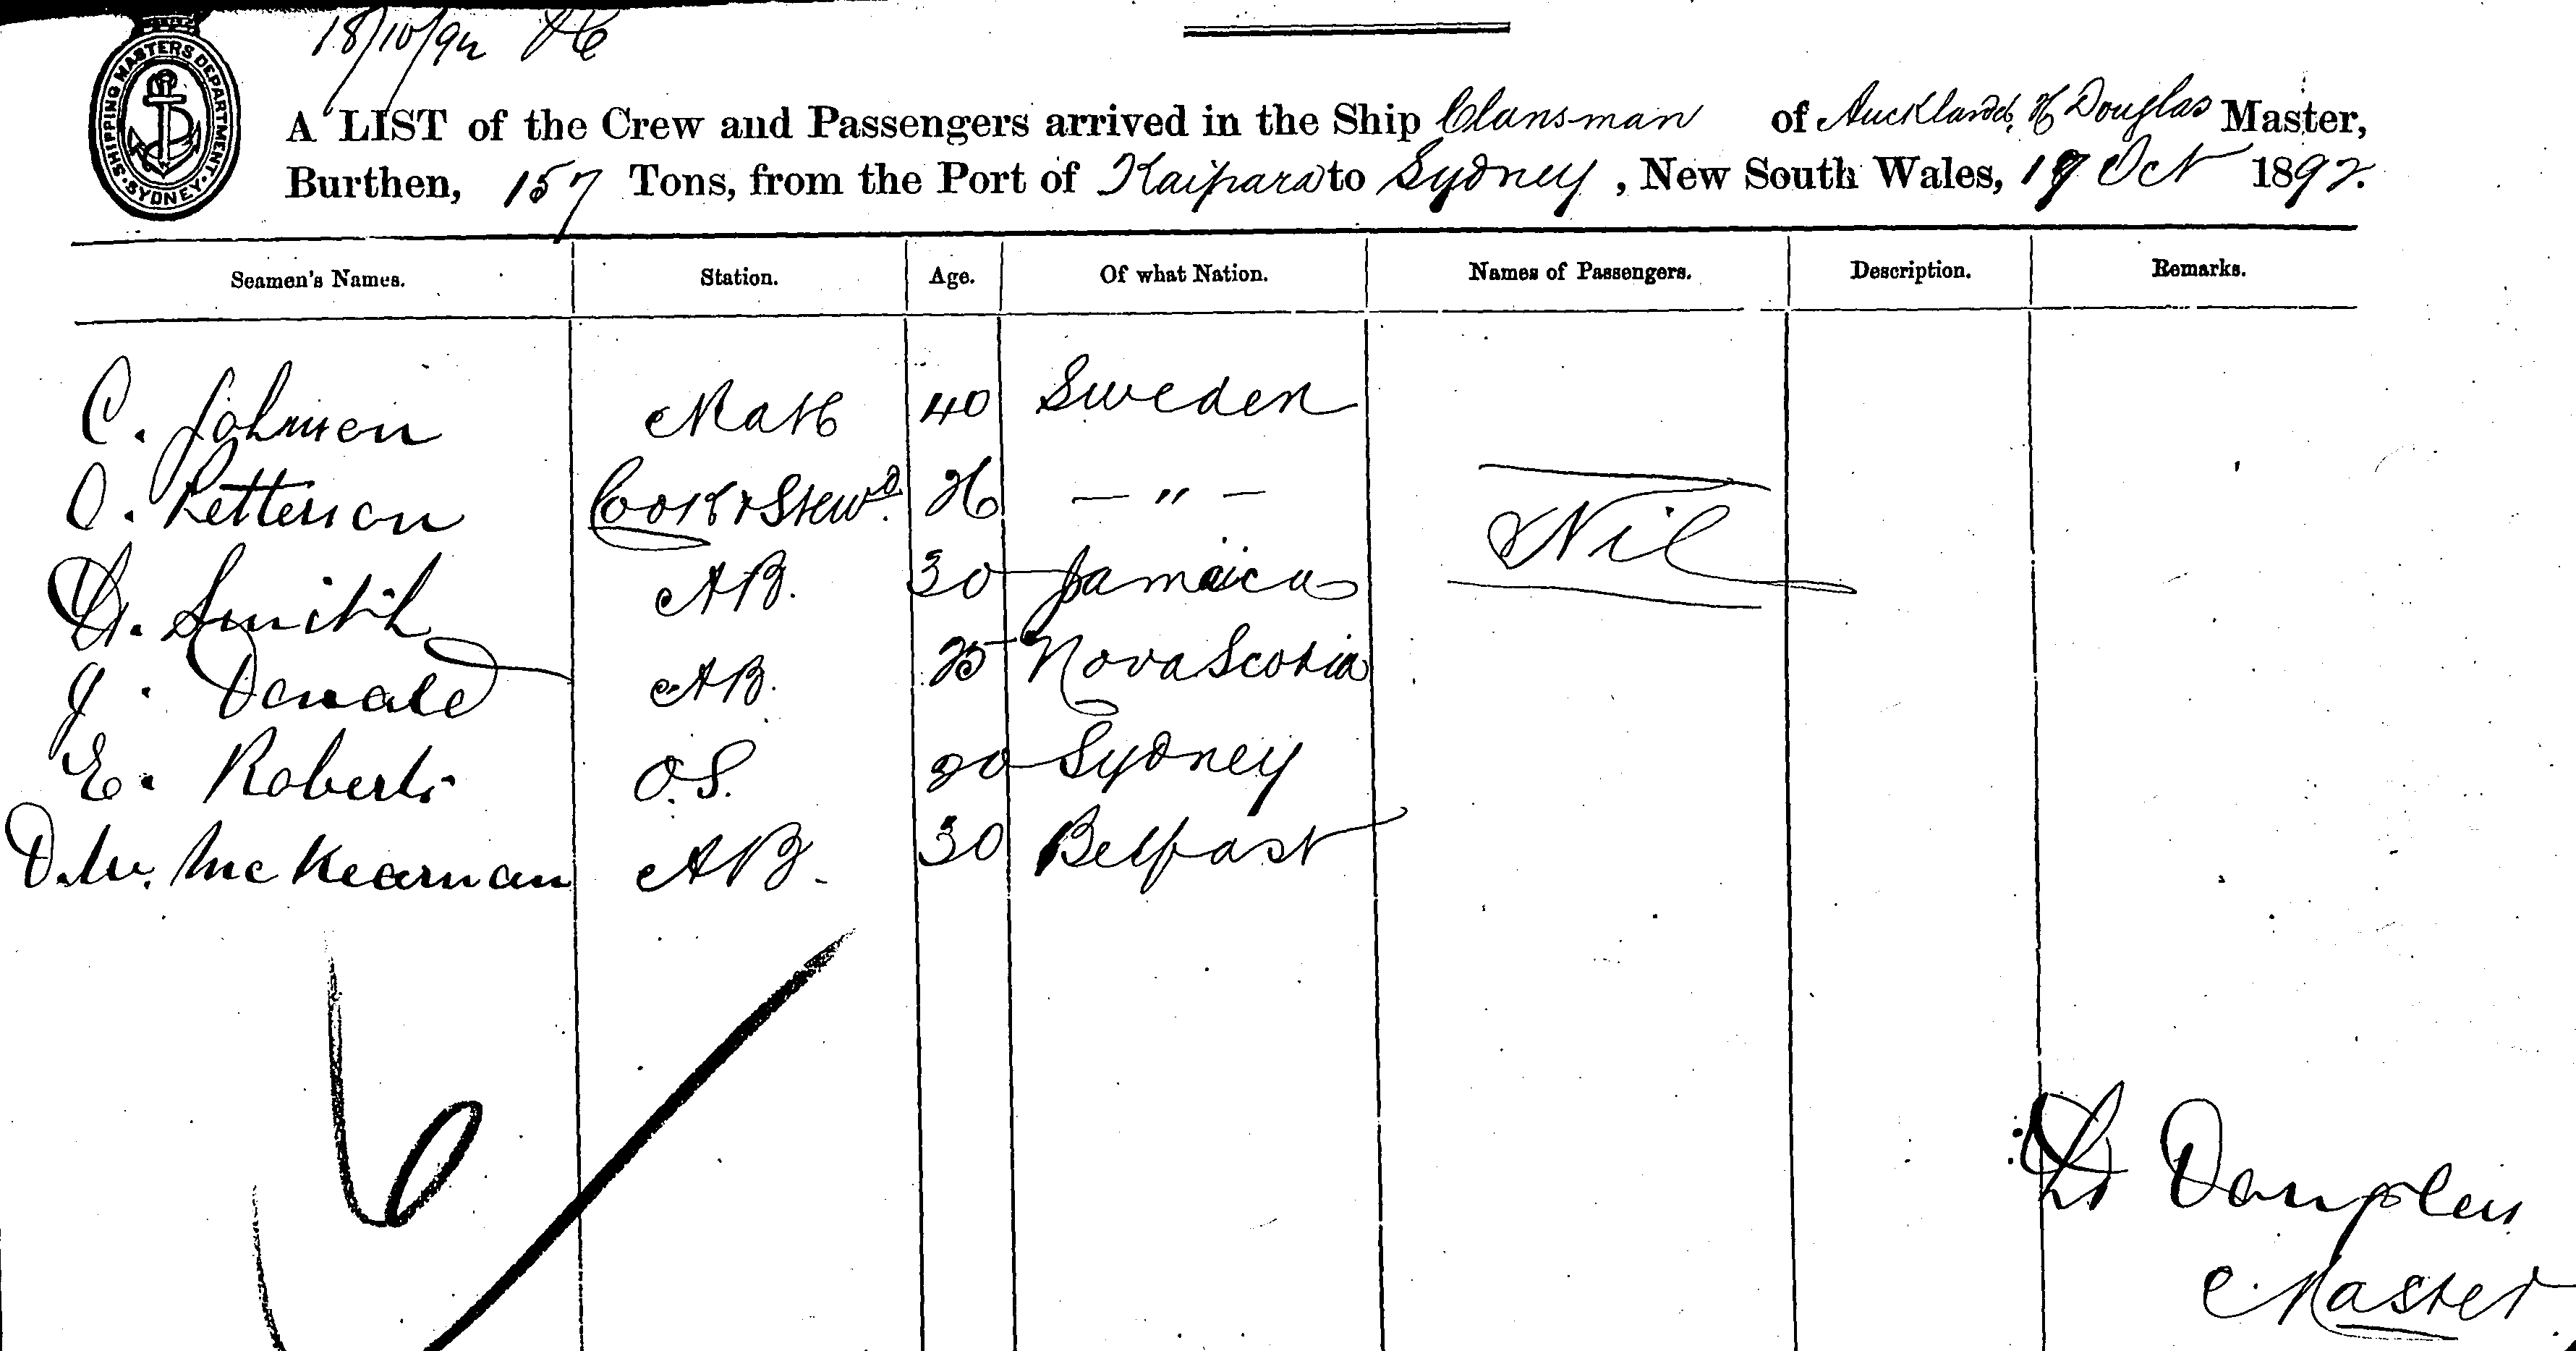 18/10/92
SHIPPING MASTERS DEPARTMENT. SYDNEY.
A LIST of the Crew and Passengers arrived in the Ship Clansman of Auckland, H Douglas Master,
Burthen, 157 Tons, from the Port of Kaipara to Sydney, New South Wales, 19 Oct 1892.
Seamen's Names. Station. Age. Of what Nation. Names of Passengers. Description. Remarks.
C. Johnsen Mate 40 Sweden
O. Petterson Cook & Stewd. 26 — " — Nil
H. Smith AB. 30 Jamaica
J. Donald AB. 25 Nova Scotia
E. Roberts O.S. 20 Sydney
D. W. McKearnan AB. 30 Belfast
6
H Douglas
Master